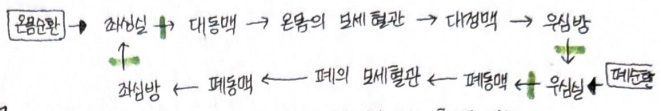 온몸순환 → 좌심실 → 대동맥 → 온몸의 모세혈관 → 대정맥 → 우심방
↑ ↓
좌심방 ← 폐동맥 ← 폐의 모세혈관 ← 폐동맥 ← 우심실 ← 폐순환